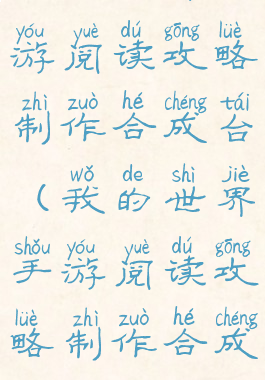 yóu yuè dú gōng lüè
游阅读攻略
zhì zuò hé chéng tái
制作合成台
wǒ de shì jiè
(我的世界
shǒu yóu yuè dú gōng
手游阅读攻
lüè zhì zuò hé chéng
略制作合成